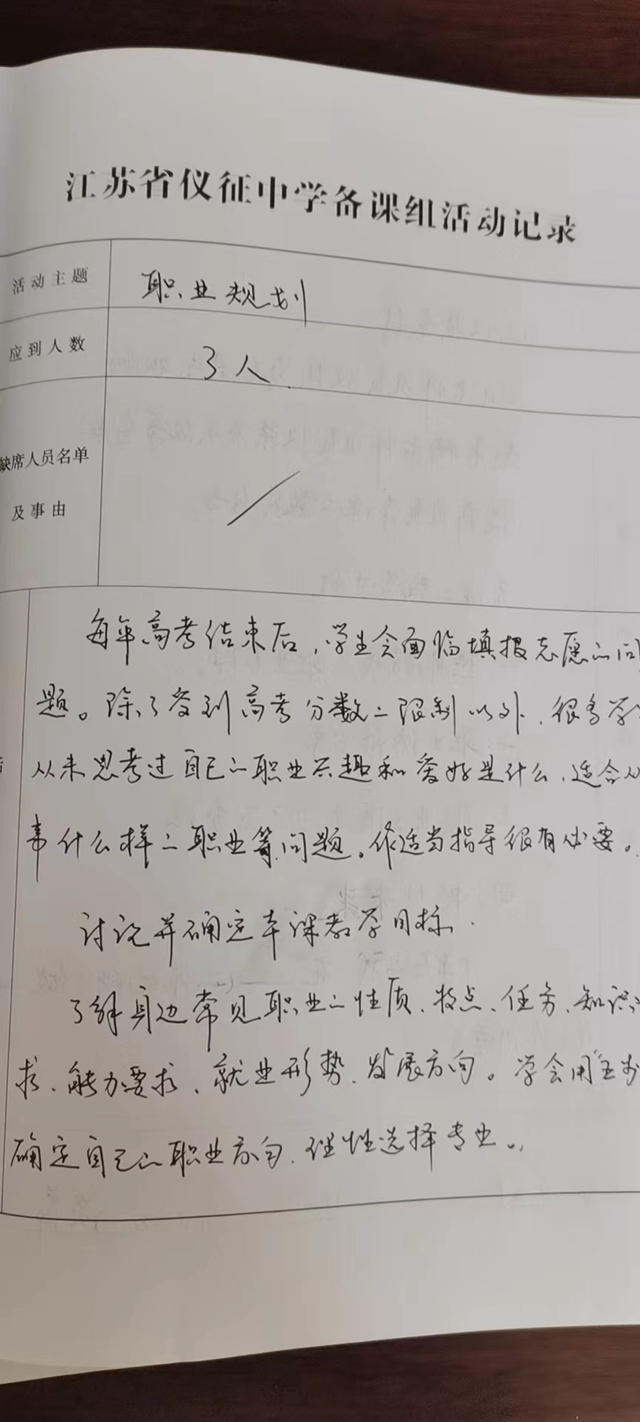 江苏省仪征中学备课组活动记录
活动主题 职业规划
应到人数 3人.
缺席人员名单
及事由
每年高考结束后,学生会面临填报志愿的问
题。除了受到高考分数的限制以外,很多学
从未思考过自己的职业兴趣和爱好是什么,适合从
事什么样的职业等问题。作适当指导很有必要。
讨论并确定本课教学目标.
了解身边常见职业的性质、特点、任务、知识
求、能力要求、就业形势、发展方向。学会用
确定自己的职业方向,理性选择专业。